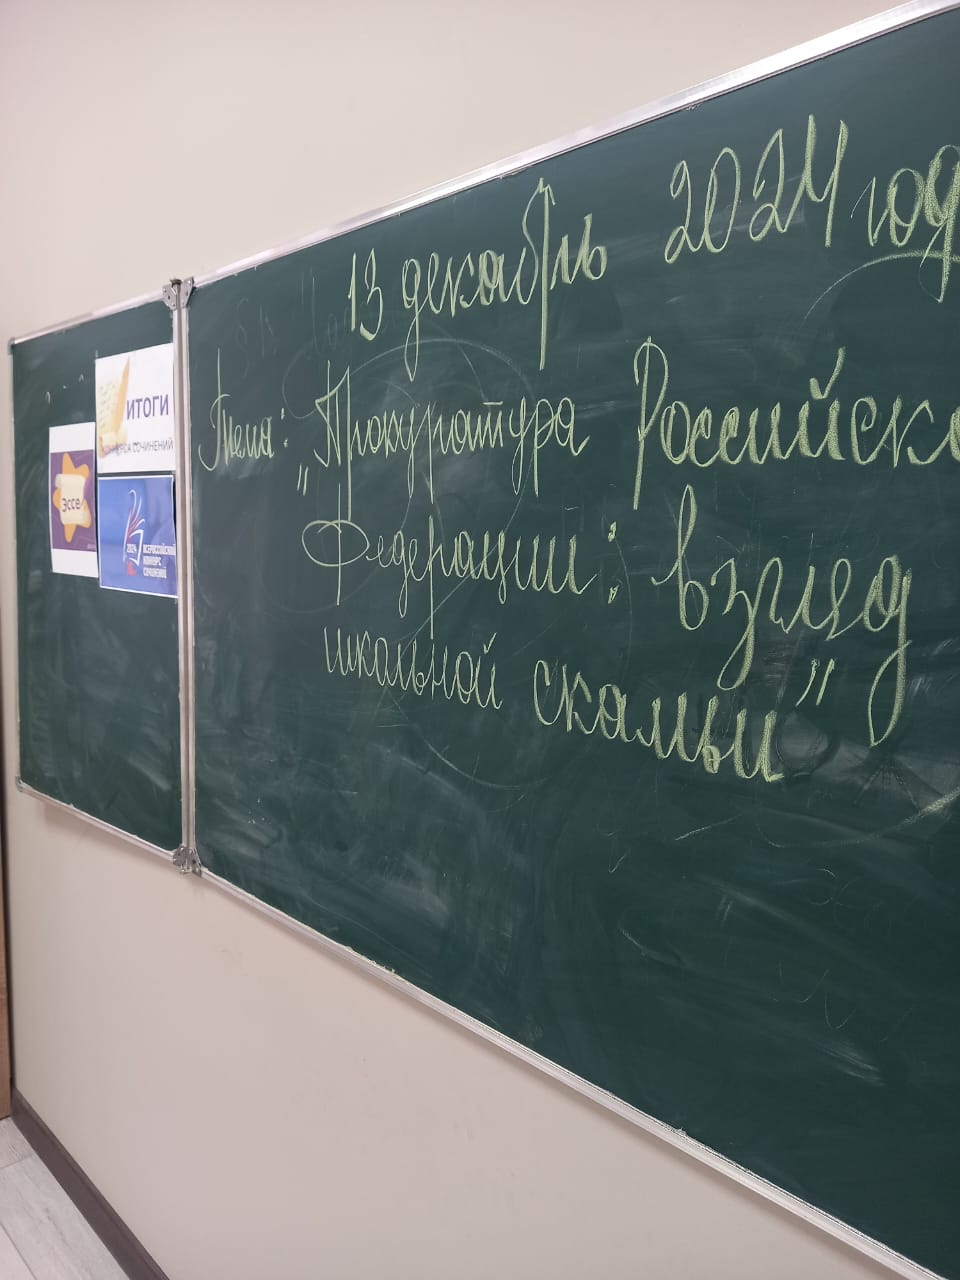 13 декабрь 2024 год
Тема: „Прокуратура Российско
Федерации: взгляд
школьной скамьи"
ИТОГИ
КОНКУРСА СОЧИНЕНИЙ
Эссе
2024
ВСЕРОССИЙСКИЙ
КОНКУРС
СОЧИНЕНИЙ